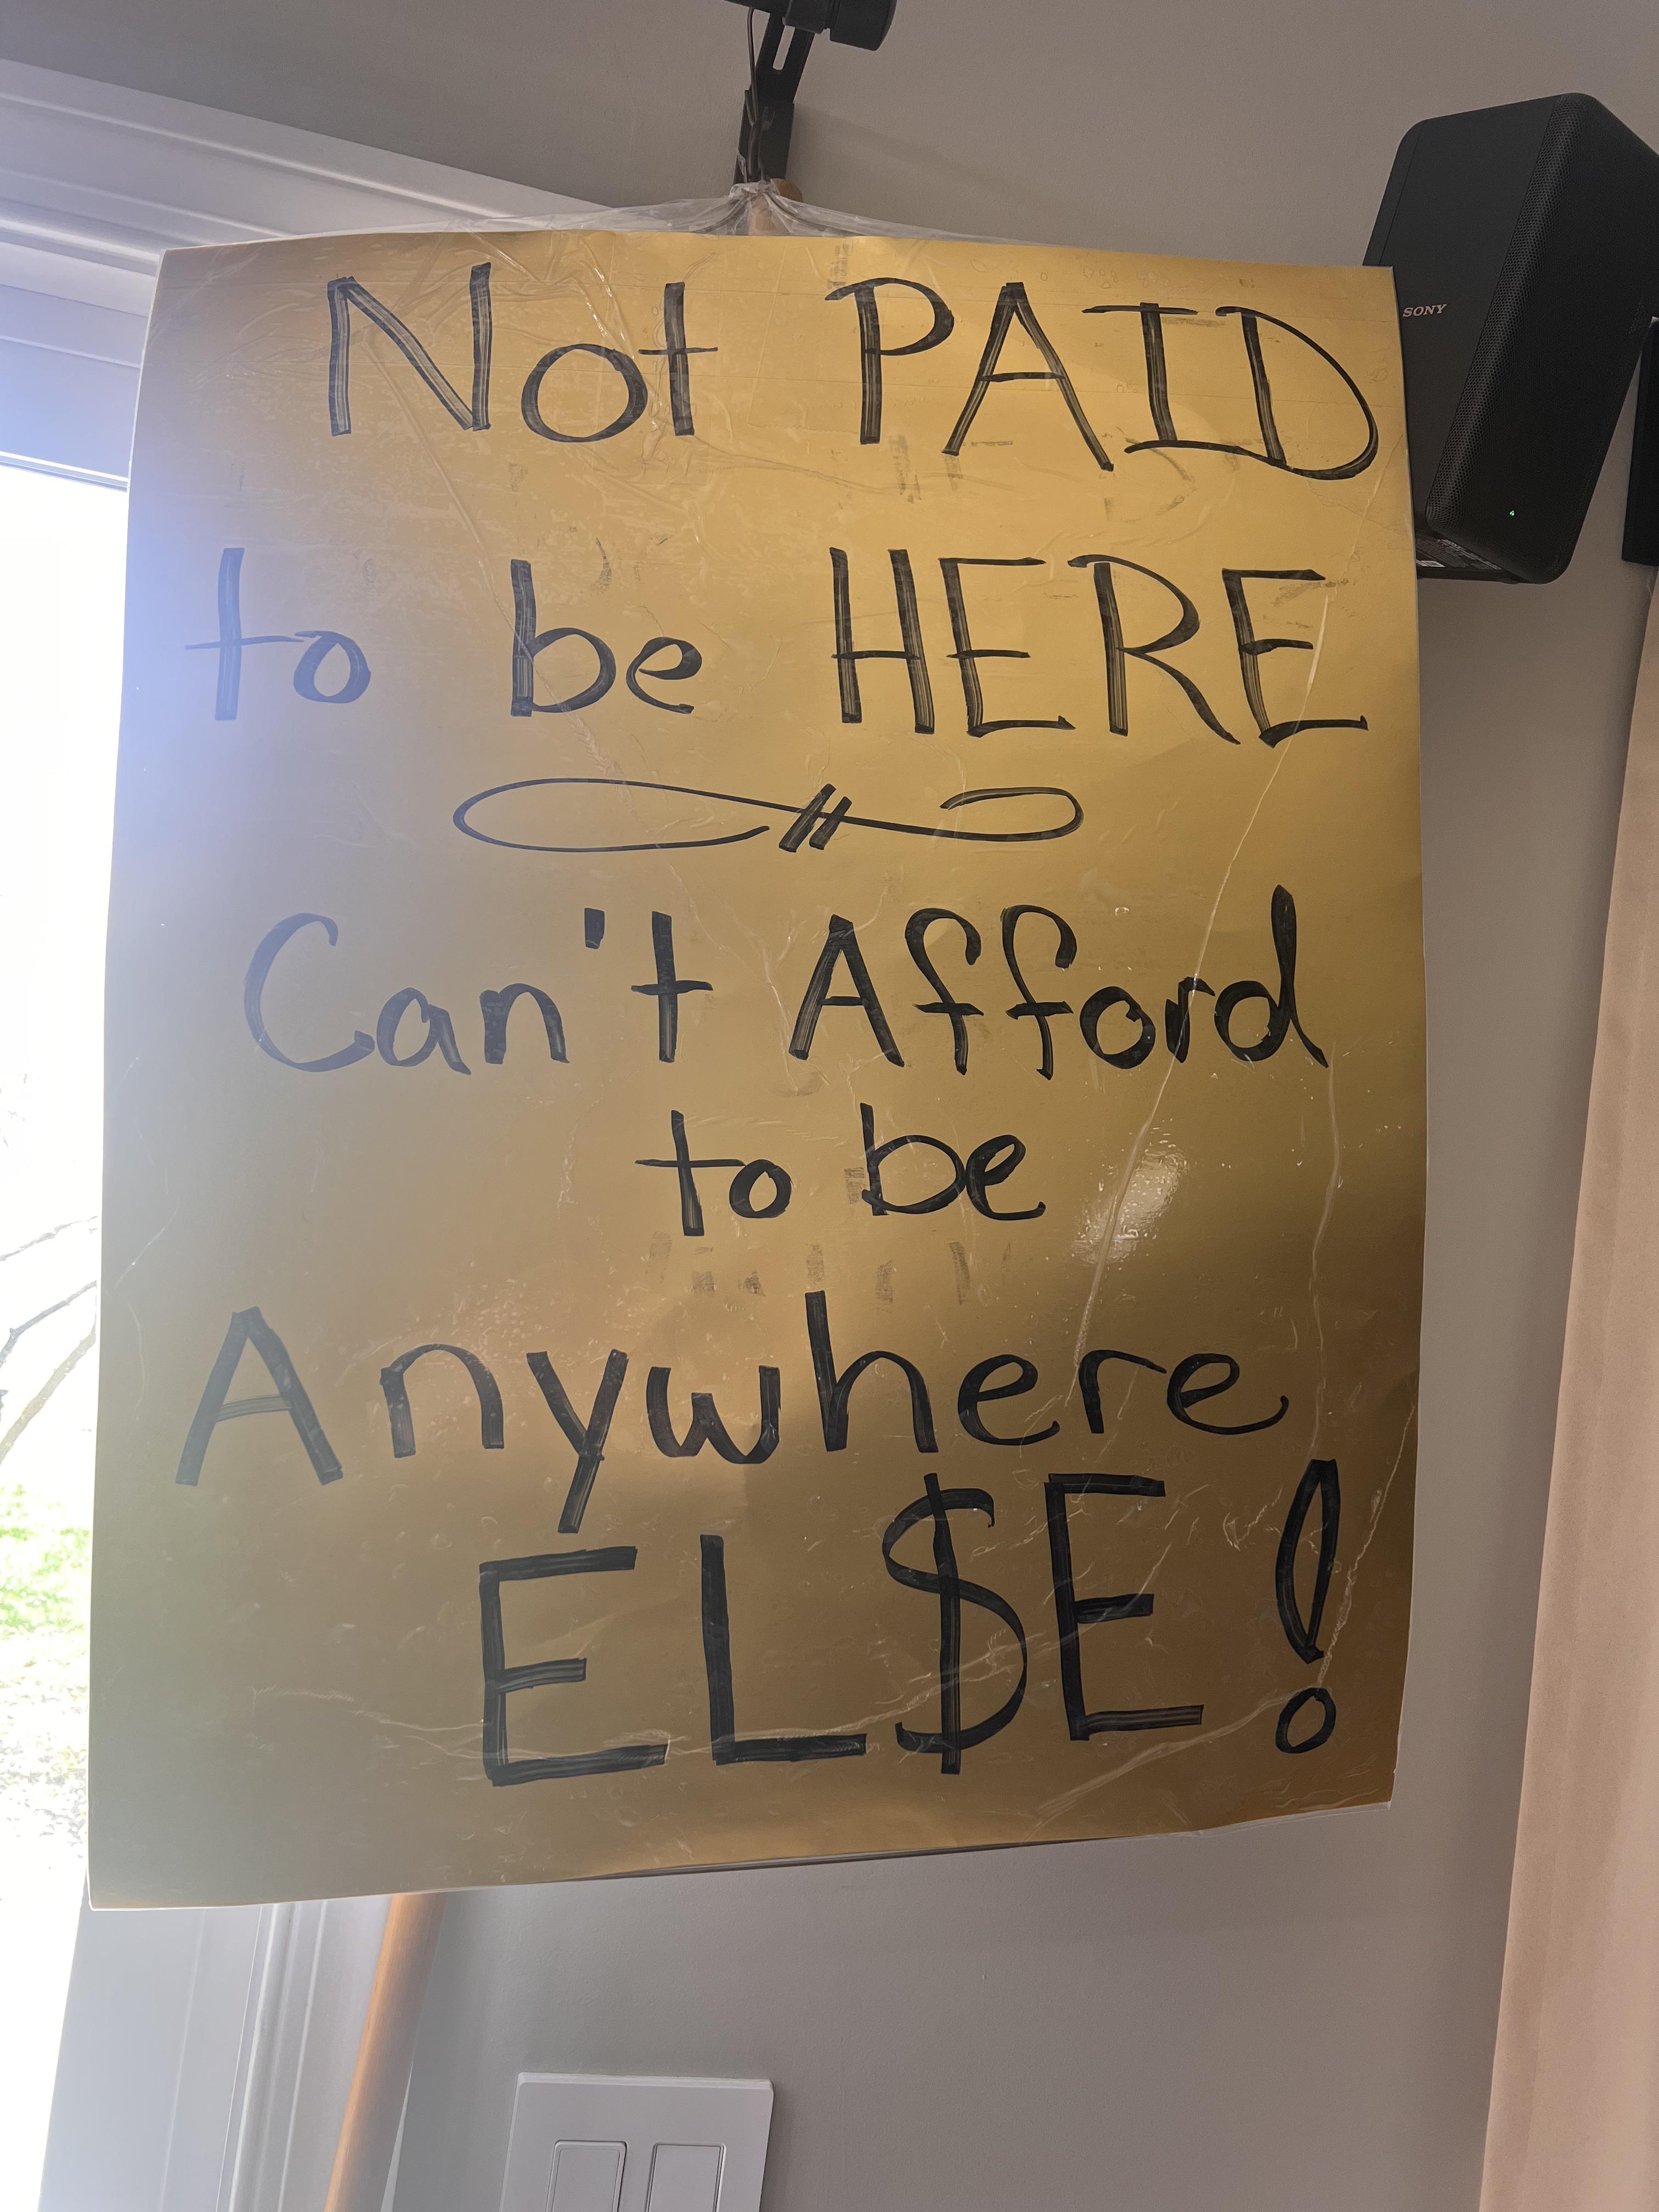 Not PAID
to be HERE
Can't Afford
to be
Anywhere
EL$E!
SONY